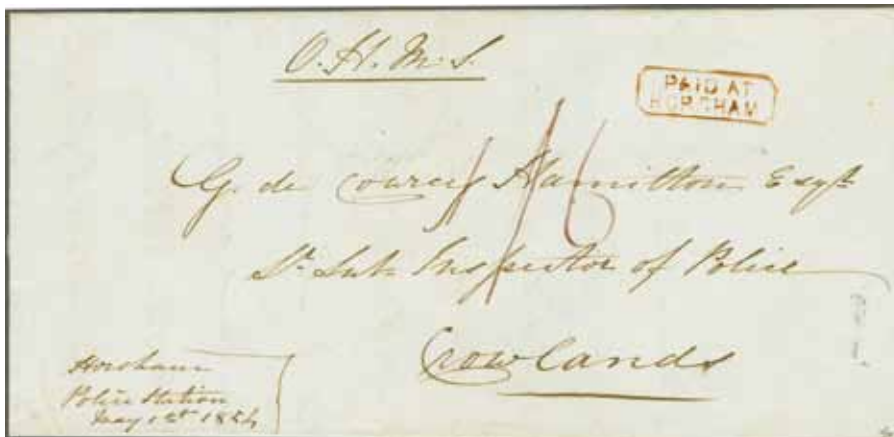 O.H.M.S.
PAID AT
HORSHAM
G. de Courcy Hamilton Esqr
1/6
Sr. Sub Inspector of Police
Crowlands
Horsham
Police Station
May 1st 1854